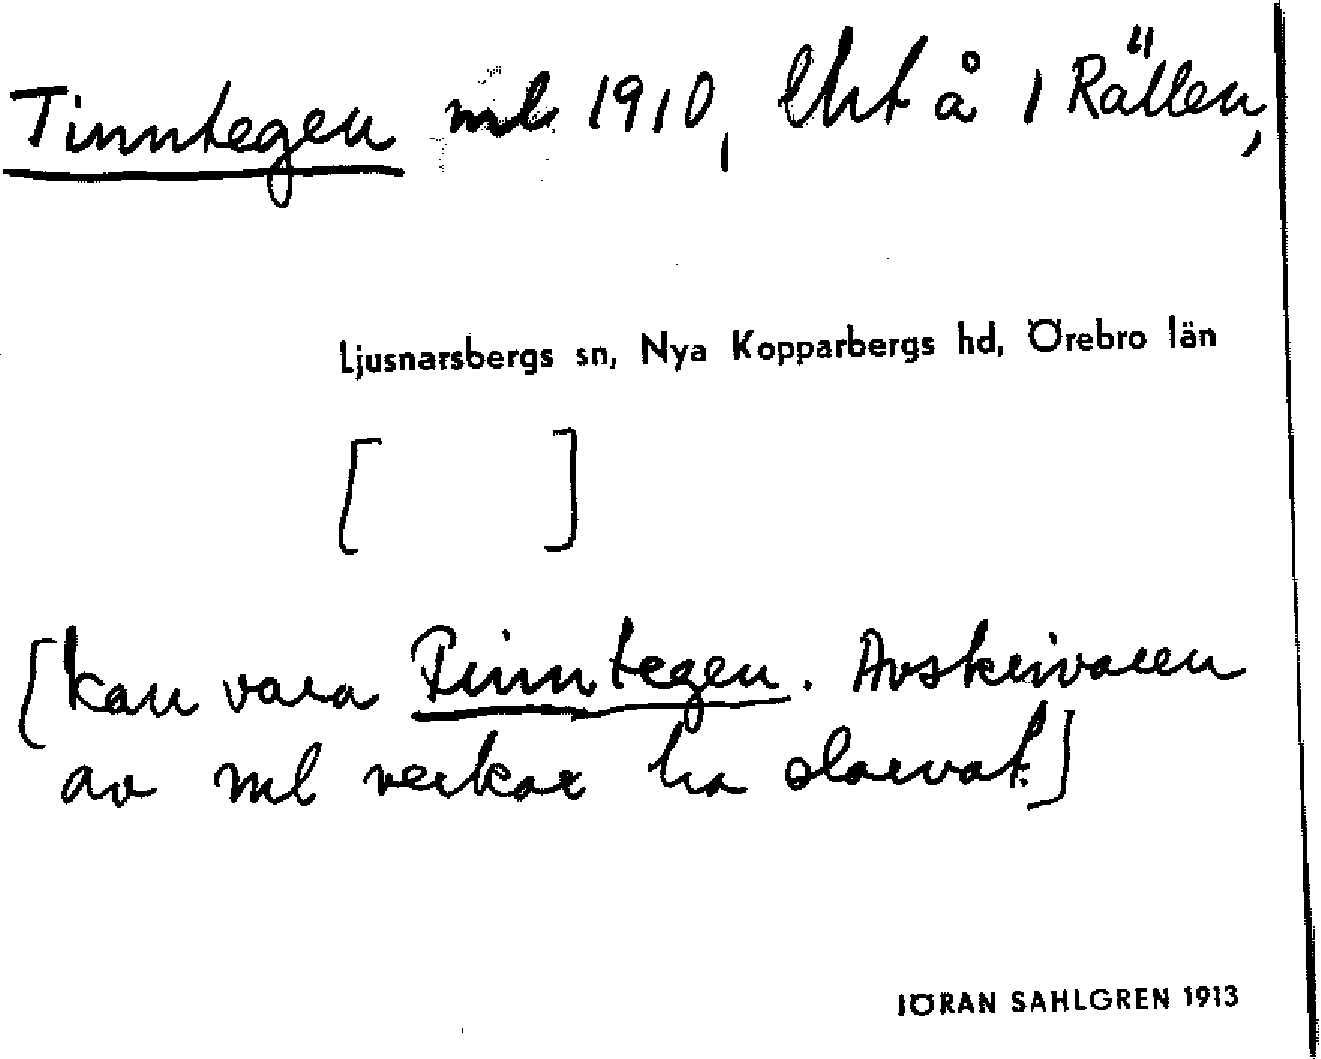 Tinntegen ml 1910, Uht å 1 Rällen,
Ljusnarsbergs sn, Nya Kopparbergs hd, Örebro län
[ ]
[kan vara Pinntegen. Avskrivaren
av ml verkar ha slarvat.]
JÖRAN SAHLGREN 1913